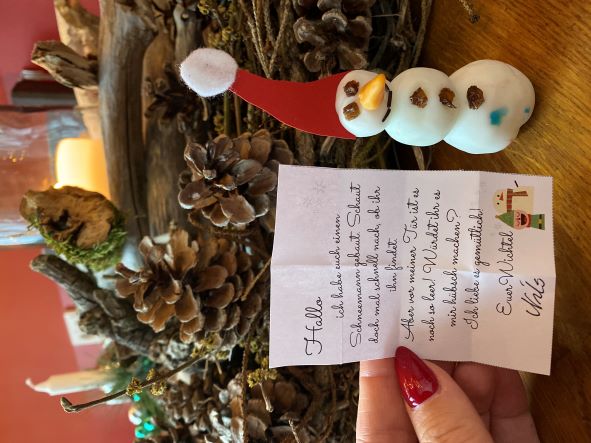 Hallo
ich habe euch einen
Schneemann gebaut. Schaut
doch mal schnell nach, ob ihr
ihn findet.
Aber vor meiner Tür ist es
noch so leer! Würdet ihr es
mir hübsch machen?
Ich liebe es gemütlich!
Euer Wichtel